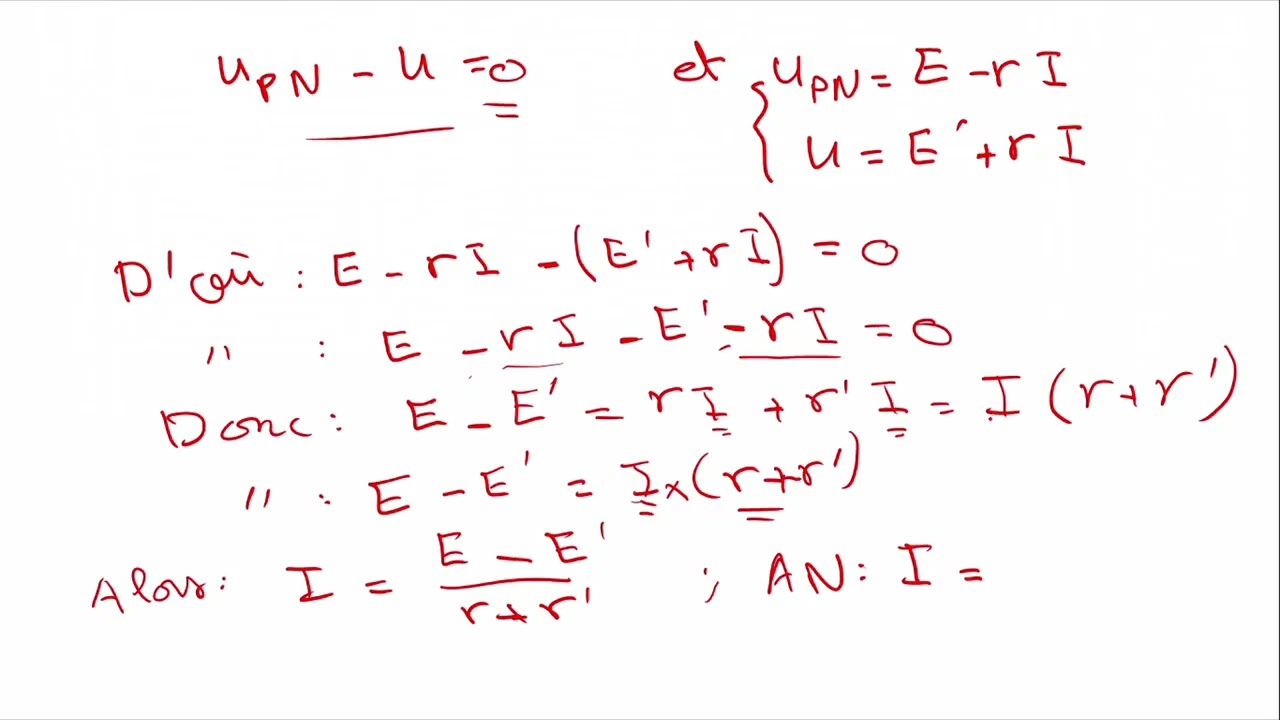 U_PN - U = 0 et { U_PN = E - r I
U = E' + r I
D'où : E - r I - (E' + r I) = 0
" : E - r I - E' - r I = 0
Donc : E - E' = r I + r' I = I (r + r')
" : E - E' = I × (r + r')
Alors : I = (E - E') / (r + r') ; AN : I =